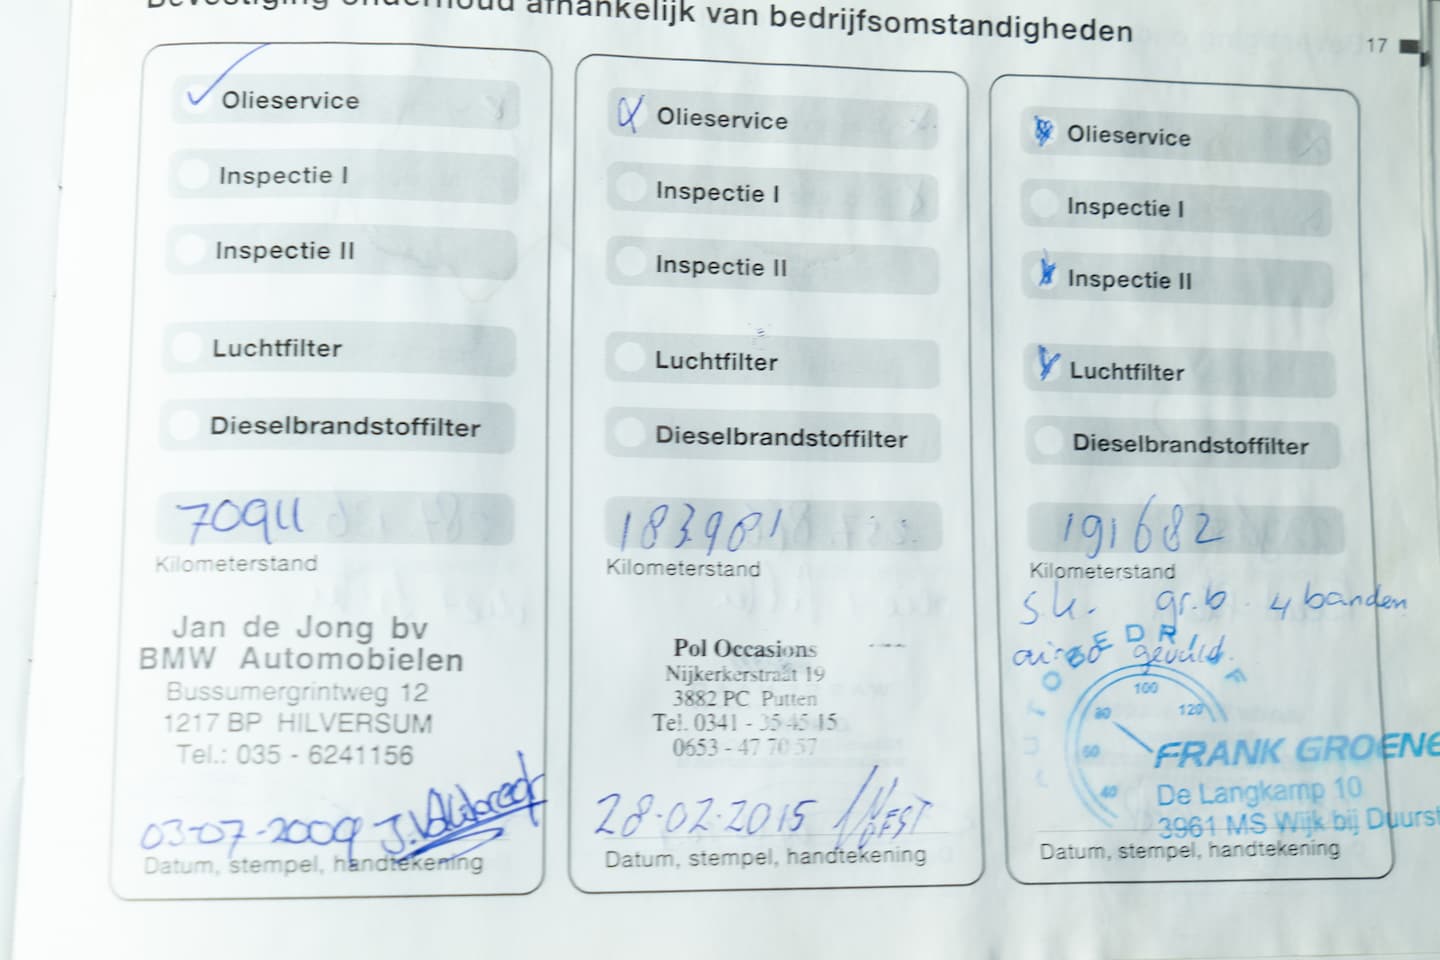 Bevestiging onderhoud afhankelijk van bedrijfsomstandigheden
17
Olieservice
Inspectie I
Inspectie II
Luchtfilter
Dieselbrandstoffilter
70911
Kilometerstand
Jan de Jong bv
BMW Automobielen
Bussumergrintweg 12
1217 BP HILVERSUM
Tel.: 035 - 6241156
03-07-2009
Datum, stempel, handtekening
Olieservice
Inspectie I
Inspectie II
Luchtfilter
Dieselbrandstoffilter
183981
Kilometerstand
Pol Occasions
Nijkerkerstraat 19
3882 PC Putten
Tel. 0341 - 35 45 15
0653 - 47 70 57
28-02-2015
Datum, stempel, handtekening
Olieservice
Inspectie I
Inspectie II
Luchtfilter
Dieselbrandstoffilter
191682
Kilometerstand
gr.b. 4 banden
airco gevuld.
100
80
120
60
40
FRANK GROENE
De Langkamp 10
3961 MS Wijk bij Duurst
Datum, stempel, handtekening